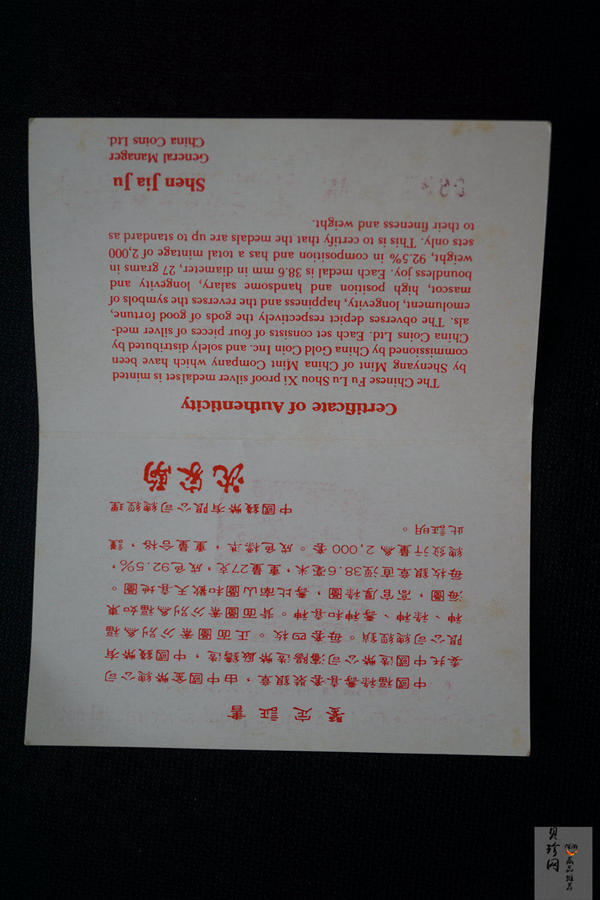 鑒定証書
中國福祿壽喜套裝銀章，由中國金幣總公司
委托中國造幣公司瀋陽造幣廠鑄造，中國錢幣有
限公司總經銷。每套四枚。正面圖案分別為福
神、祿神、壽神和喜神。背面圖案分別為福如東
海圖，高官厚祿圖，壽比南山圖和歡天喜地圖。
每枚銀章直徑38.6毫米，重量27克，成色92.5%，
總發行量為2,000套。成色標準，重量合格，謹
此証明。
中國錢幣有限公司總經理
沈家駒
Certificate of Authenticity
The Chinese Fu Lu Shou Xi proof silver medalset is minted
by Shenyang Mint of China Mint Company which have been
commissioned by China Gold Coin Inc. and solely distributed by
China Coins Ltd. Each set consists of four pieces of silver med-
als. The obverses depict respectively the gods of good fortune,
emolument, longevity, happiness and the reverses the symbols of
mascot, high position and handsome salary, longevity and
boundless joy. Each medal is 38.6 mm in diameter, 27 grams in
weight, 92.5% in composition and has a total mintage of 2,000
sets only. This is to certify that the medals are up to standard as
to their fineness and weight.
Shen Jia Ju
General Manager
China Coins Ltd.
贝珍网